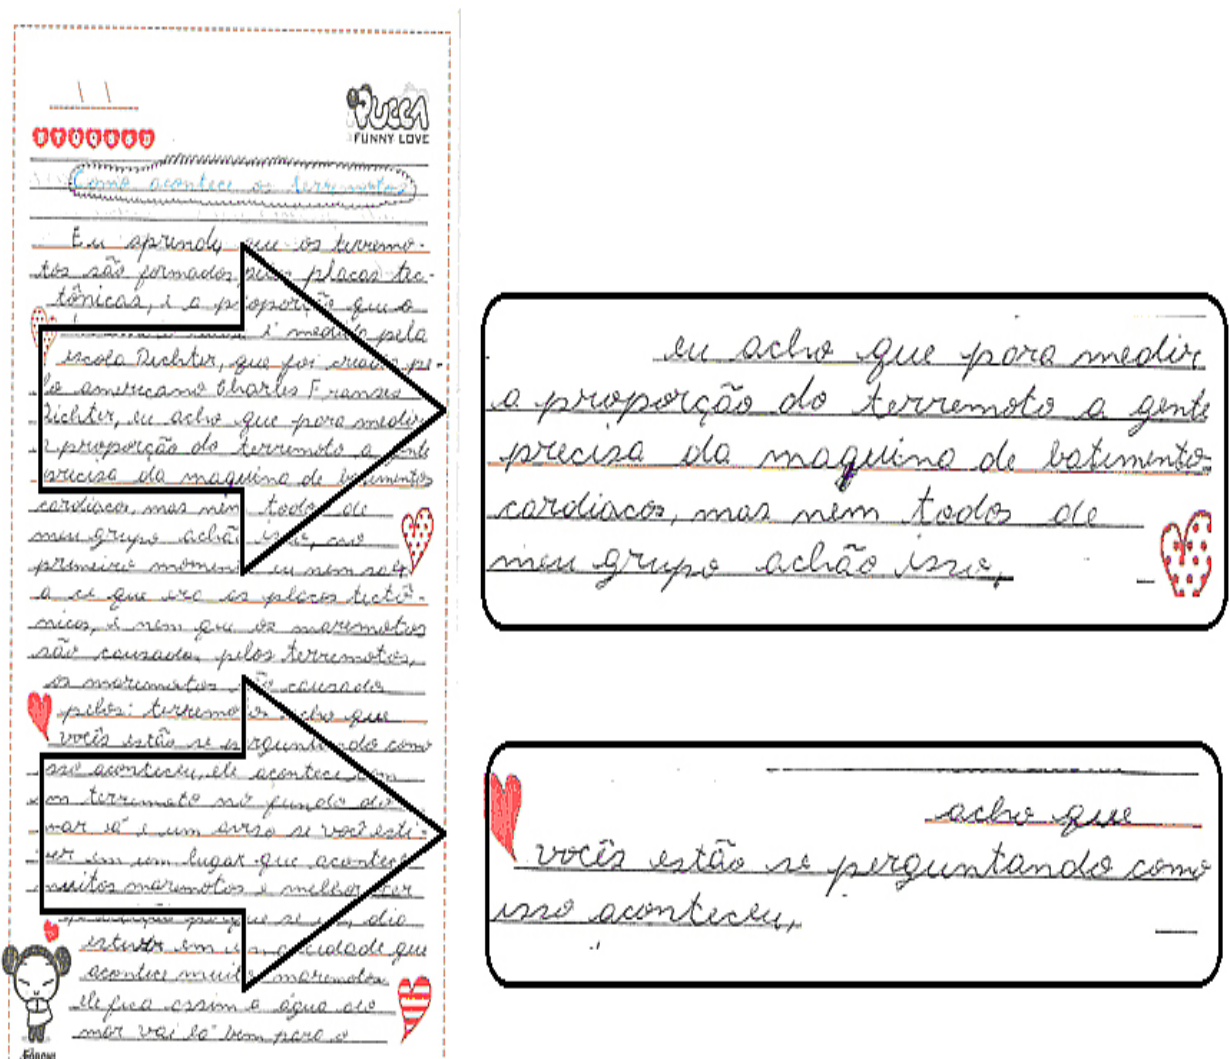 PUCCA
FUNNY LOVE
Como acontece os terremotos
Eu aprendi que os terremo-
tos são formados pelas placas tec-
tônicas, e a proporção que o
é medido pela
escola Richter, que foi criada pe-
lo americano Charles Franses
Richter, eu acho que para medir
a proporção do terremoto a gente
precisa da maquina de batimentos
cardiacos, mas nem todos de
meu grupo achão isso, no
primeiro momento eu nem sabi
a ce que era as placas tectô-
nicas, e nem que os maremotos
são causados pelos terremotos,
os maremotos são causados
pelos: terremotos acho que
vocês estão se perguntando como
isso aconteceu, ele acontece com
um terremoto no fundo do
mar lá é um aviso se você esti-
ver em um lugar que acontece
muitos maremotos é melhor ter
porque se um dia
estiver em uma cidade que
acontece muitos maremotos
ele fica assim a água do
mar vai lá bem para o
eu acho que para medir
a proporção do terremoto a gente
precisa da maquina de batimento
cardiacos, mas nem todos de
meu grupo achão isso,
acho que
vocês estão se perguntando como
isso aconteceu,